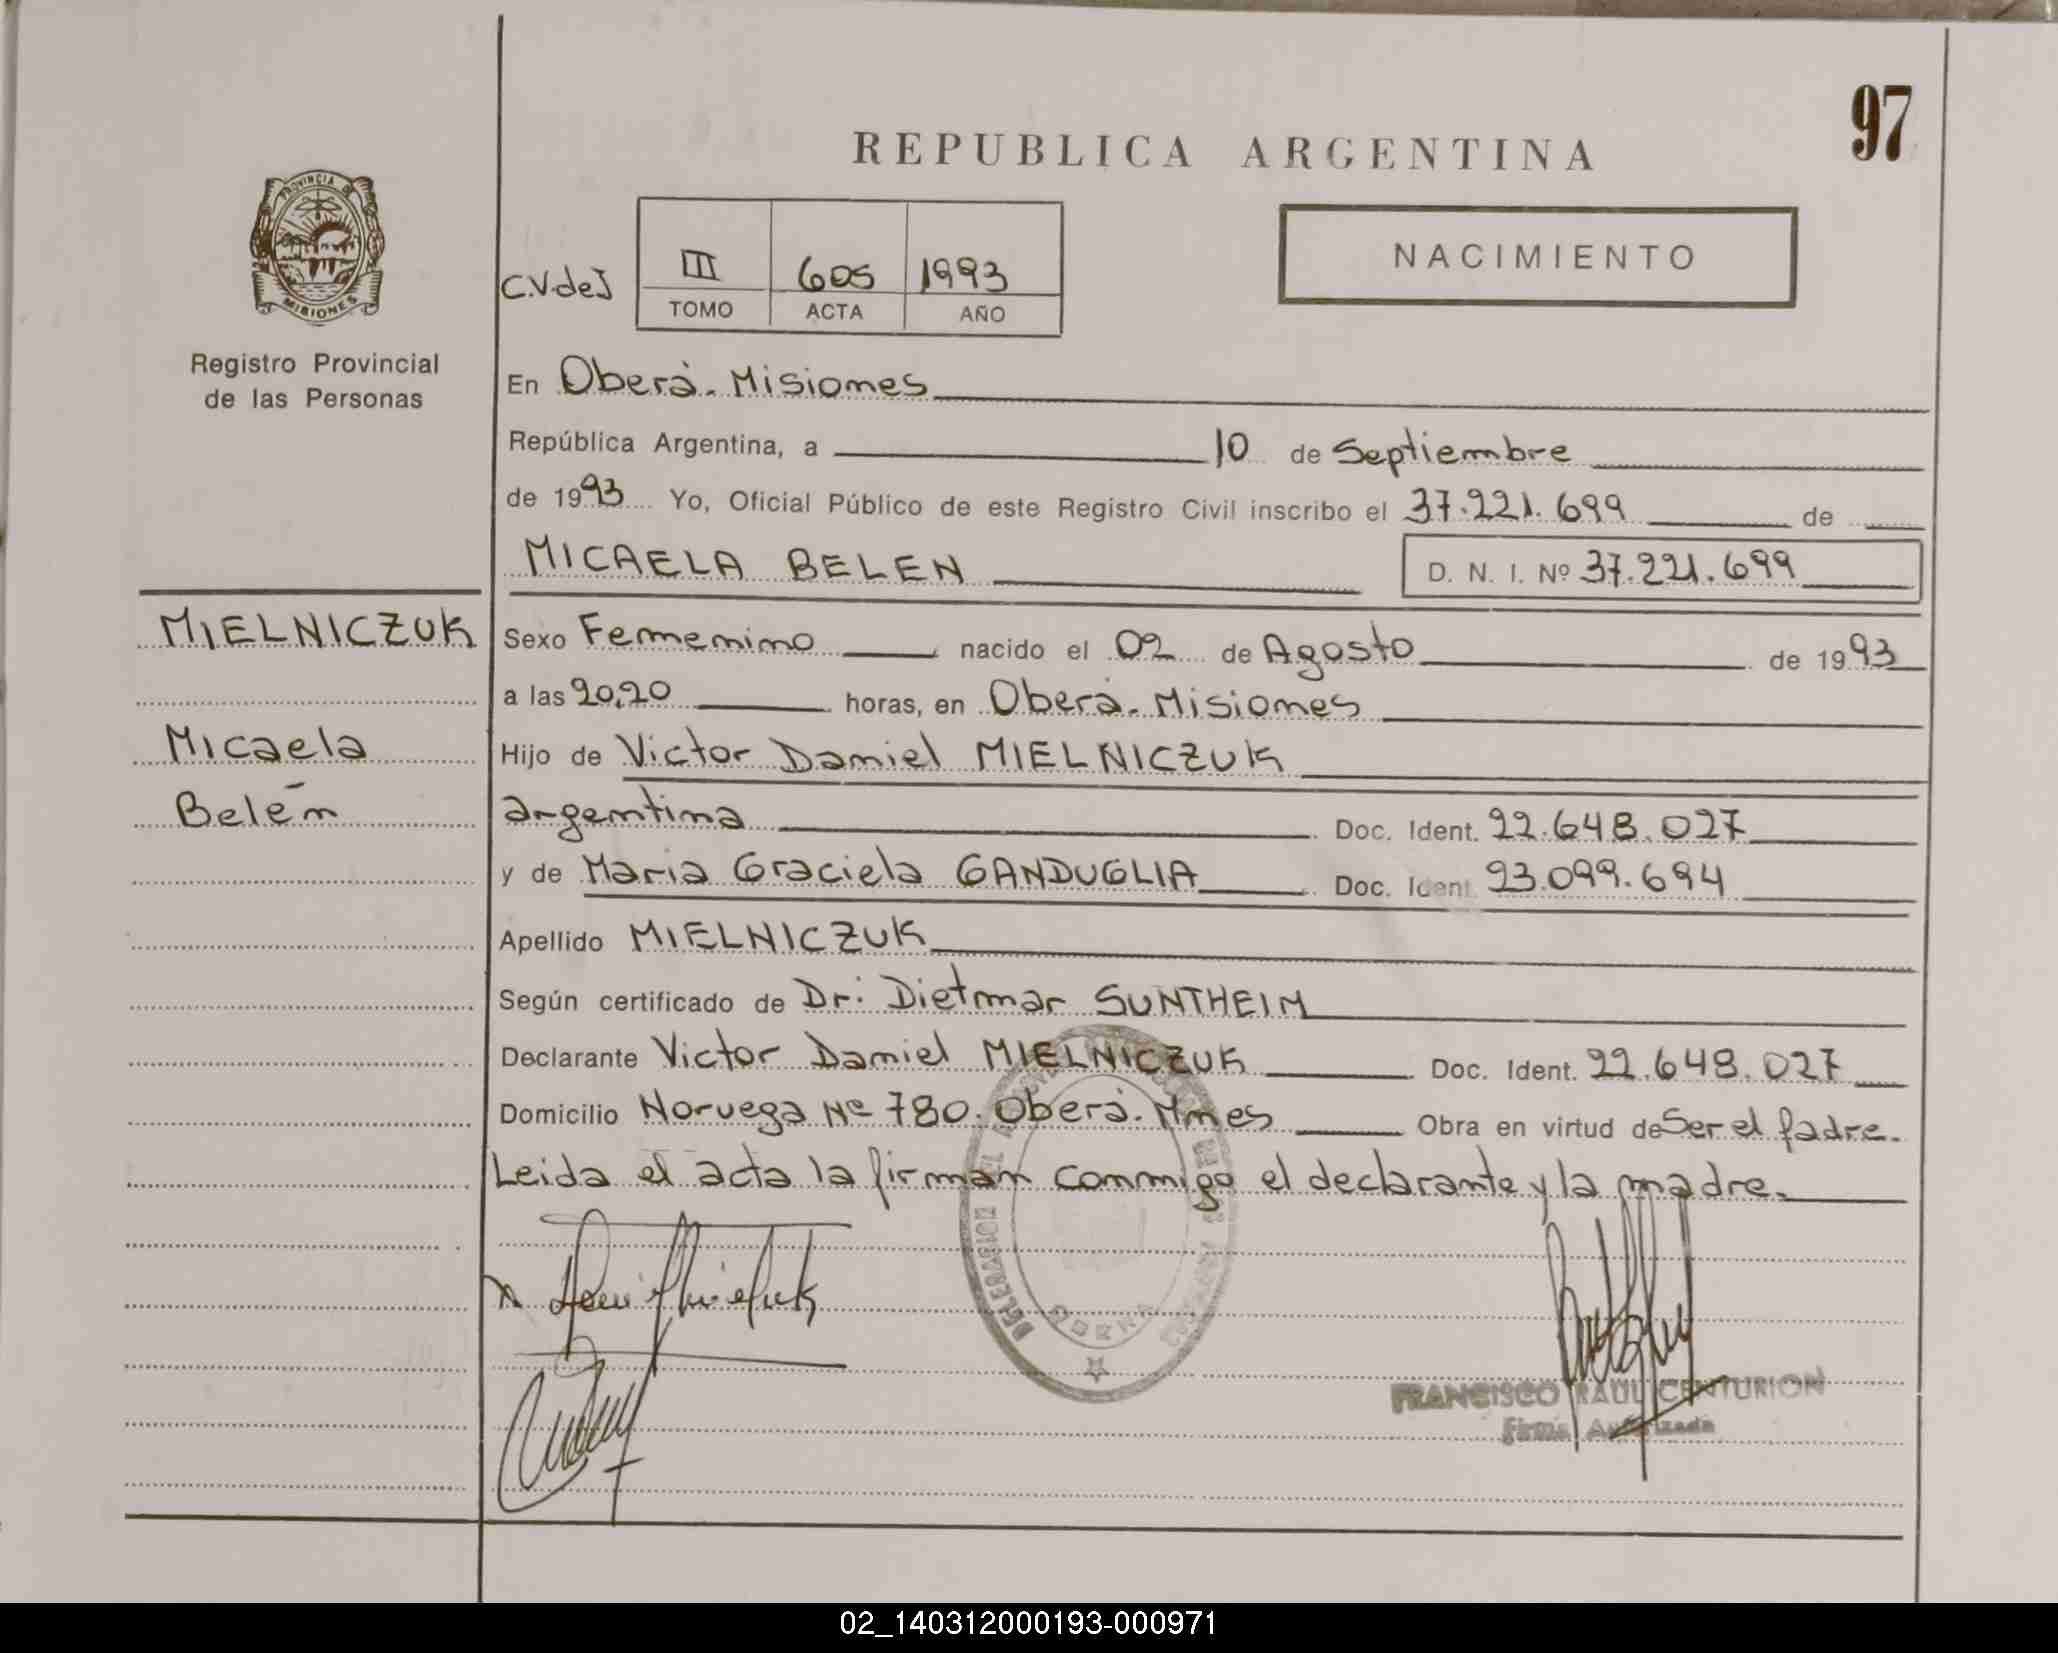 97
REPUBLICA ARGENTINA
PROVINCIA DE
MISIONES
Registro Provincial
de las Personas
C.V.deJ
III 605 1993
TOMO ACTA AÑO
NACIMIENTO
En Oberá. Misiones
República Argentina, a 10 de Septiembre
de 1993 Yo, Oficial Público de este Registro Civil inscribo el 37.221.699 de
MICAELA BELEN D. N. I. Nº 37.221.699
MIELNICZUK
Micaela
Belén
Sexo Femenino nacido el 02 de Agosto de 1993
a las 20,20 horas, en Oberá. Misiones
Hijo de Victor Daniel MIELNICZUK
argentina Doc. Ident. 22.648.027
y de Maria Graciela GANDUGLIA Doc. Ident. 23.099.694
Apellido MIELNICZUK
Según certificado de Dr: Dietmar SUNTHEIM
Declarante Victor Daniel MIELNICZUK Doc. Ident. 22.648.027
Domicilio Noruega Nº 780. Oberá. Mnes Obra en virtud de Ser el padre.
Leida el acta la firman conmigo el declarante y la madre.
OBERA
FRANCISCO RAUL CENTURION
Firma Autorizada
02_140312000193-000971